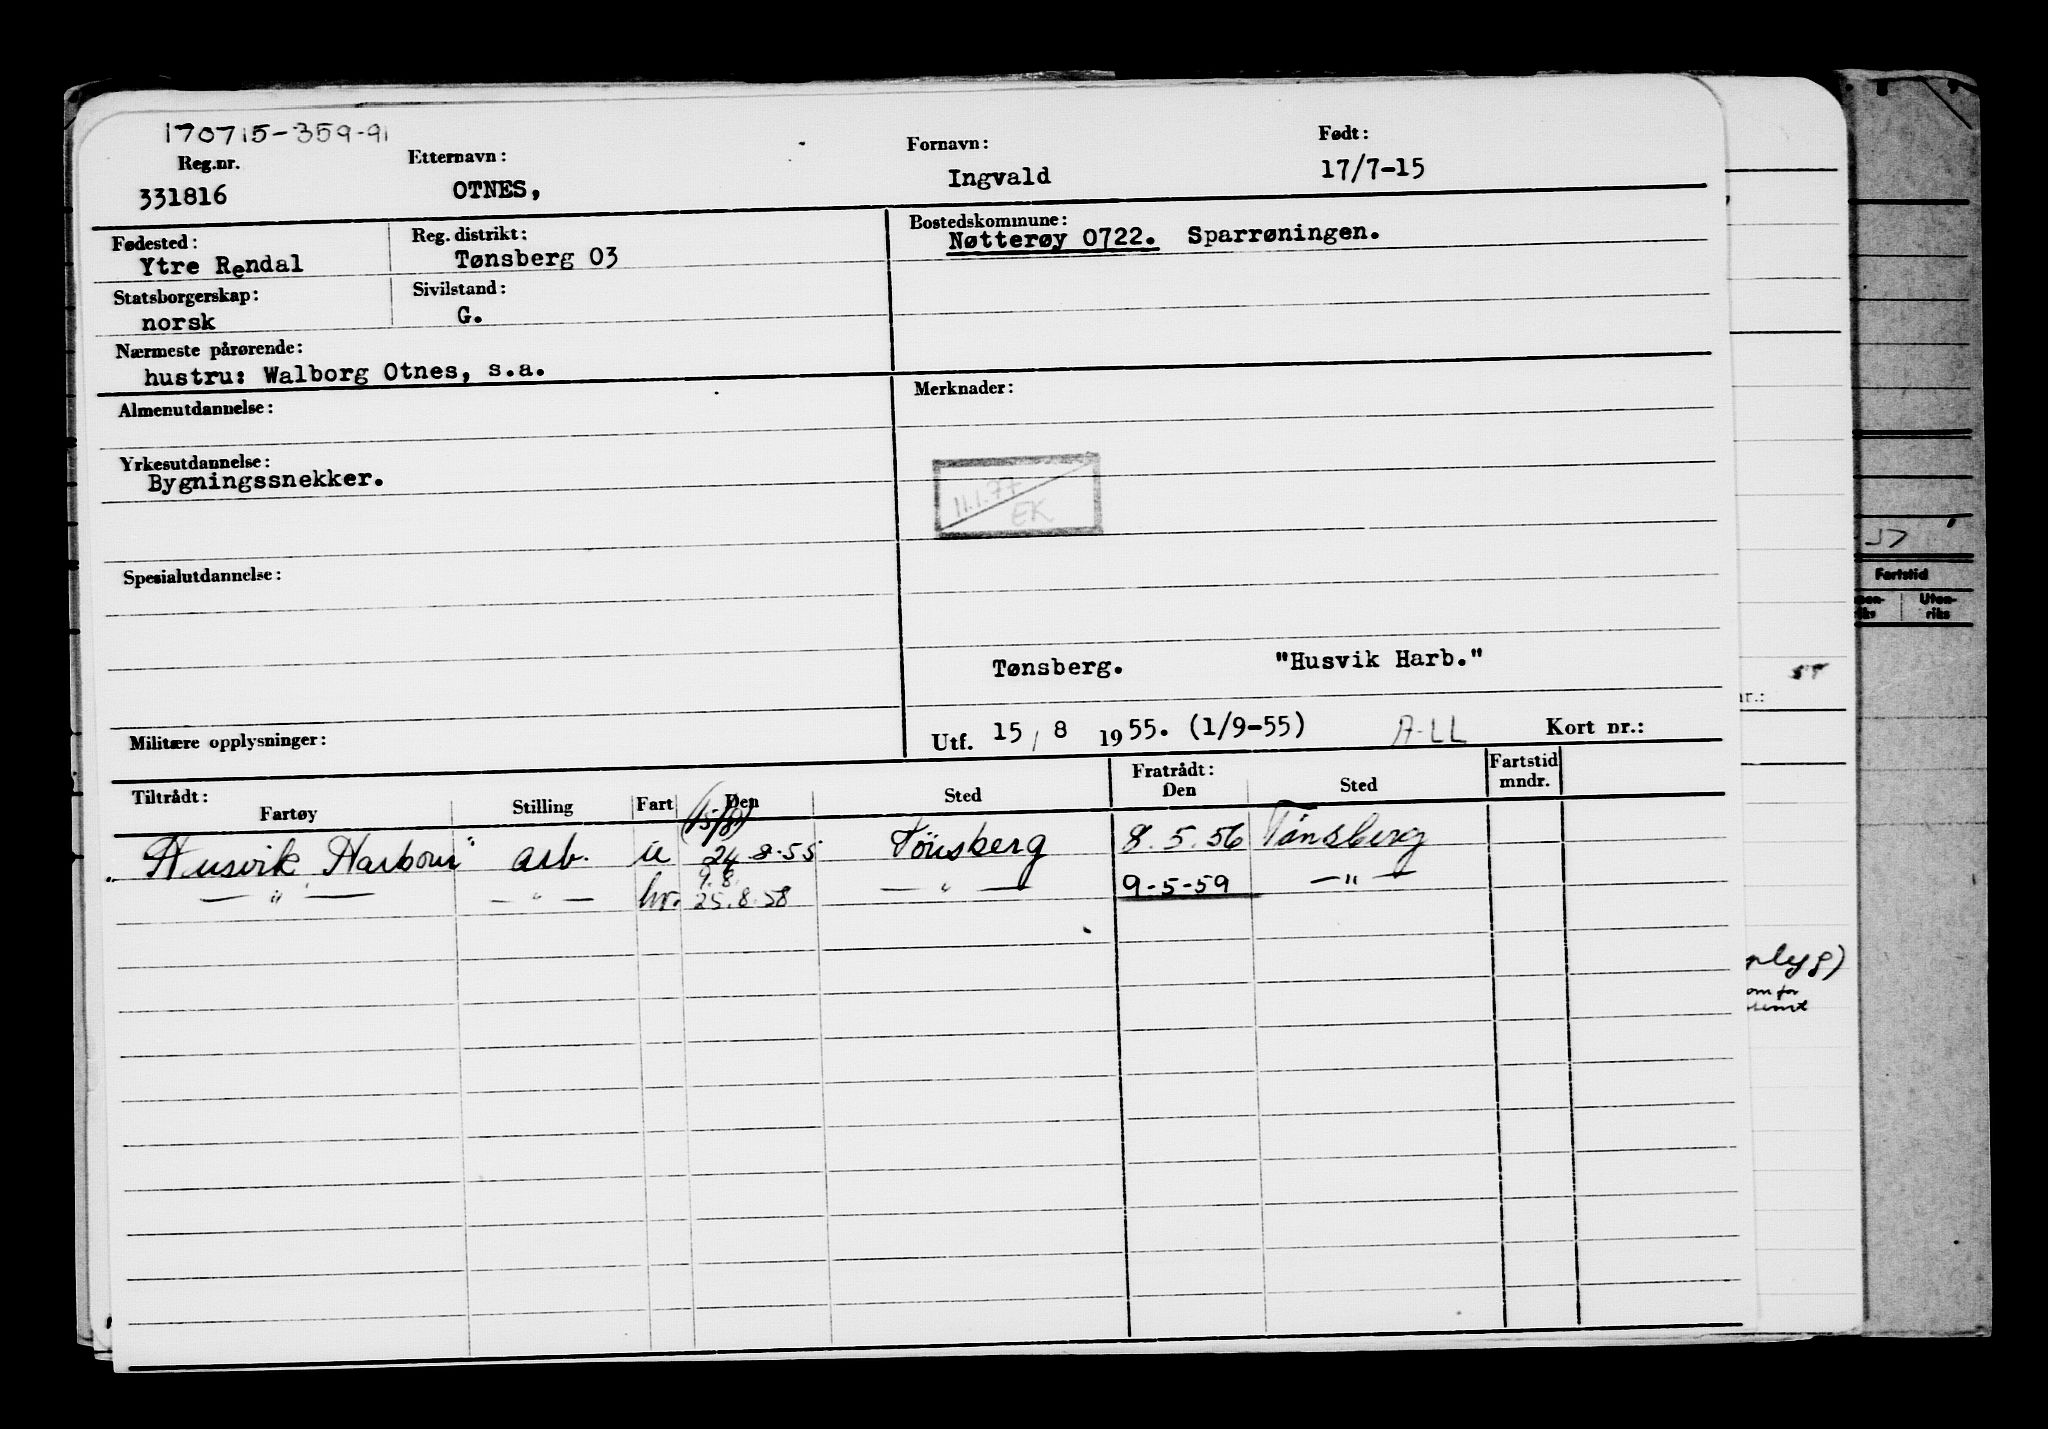 170715-359-91
Reg.nr. Etternavn: Fornavn: Født:
331816 OTNES, Ingvald 17/7-15
Fødested: Reg. distrikt: Bostedskommune:
Ytre Rendal Tønsberg 03 Nøtterøy 0722. Sparrøningen.
Statsborgerskap: Sivilstand:
norsk G.
Nærmeste pårørende:
hustru: Walborg Otnes, s.a.
Almenutdannelse: Merknader:
Yrkesutdannelse:
Bygningssnekker.
11.1.77
EK
Spesialutdannelse:
Tønsberg. "Husvik Harb."
Militære opplysninger: Utf. 15/8 1955. (1/9-55) A-LL Kort nr.:
Tiltrådt: Fratrådt: Fartstid mndr.
Fartøy Stilling Fart Den Sted Den Sted
(15/8)
"Husvik Harbour" arb. u 24-8-55 Tönsberg 8.5.56 Tønsberg
9.8.
— " — — " — hv. 25.8.58 — " — 9-5-59 — " —
Fartstid
Uten-
riks